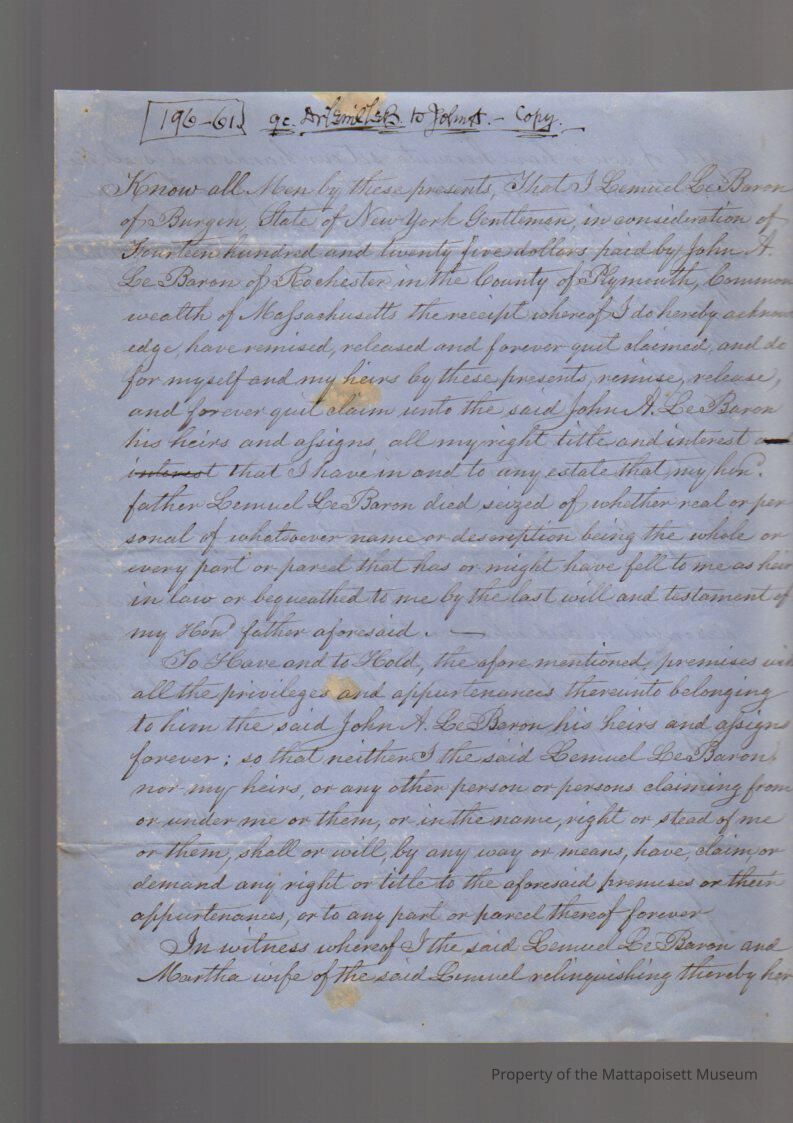 196-61. qc. to John A. - Copy.
Know all Men by these presents, That I Lemuel Le Baron
of Burgen, State of New York Gentleman, in consideration of
Fourteen hundred and twenty five dollars paid by John A.
Le Baron of Rochester in the County of Plymouth, Common
wealth of Massachusetts the receipt whereof I do hereby acknow
edge, have remised, released and forever quit claimed, and do
for myself and my heirs by these presents, remise, release,
and forever quit claim unto the said John A. Le Baron
his heirs and assigns, all my right title and interest
interest that I have in and to any estate that my hond.
father Lemuel Le Baron died seized of, whether real or per
sonal of whatsoever name or description being the whole or
every part or parcel that has or might have fell to me as heir
in law or bequeathed to me by the last will and testament of
my Hond. father aforesaid. —
To Have and to Hold, the afore mentioned, premises with
all the privileges and appurtenances thereunto belonging
to him the said John A. Le Baron his heirs and assigns
forever; so that neither I the said Lemuel Le Baron,
nor my heirs, or any other person or persons claiming from
or under me or them, or in the name, right or stead of me
or them, shall or will, by any way or means, have, claim, or
demand any right or title to the aforesaid premises or their
appurtenances, or to any part or parcel thereof forever
In witness whereof I the said Lemuel Le Baron and
Martha wife of the said Lemuel relinquishing thereby her
Property of the Mattapoisett Museum